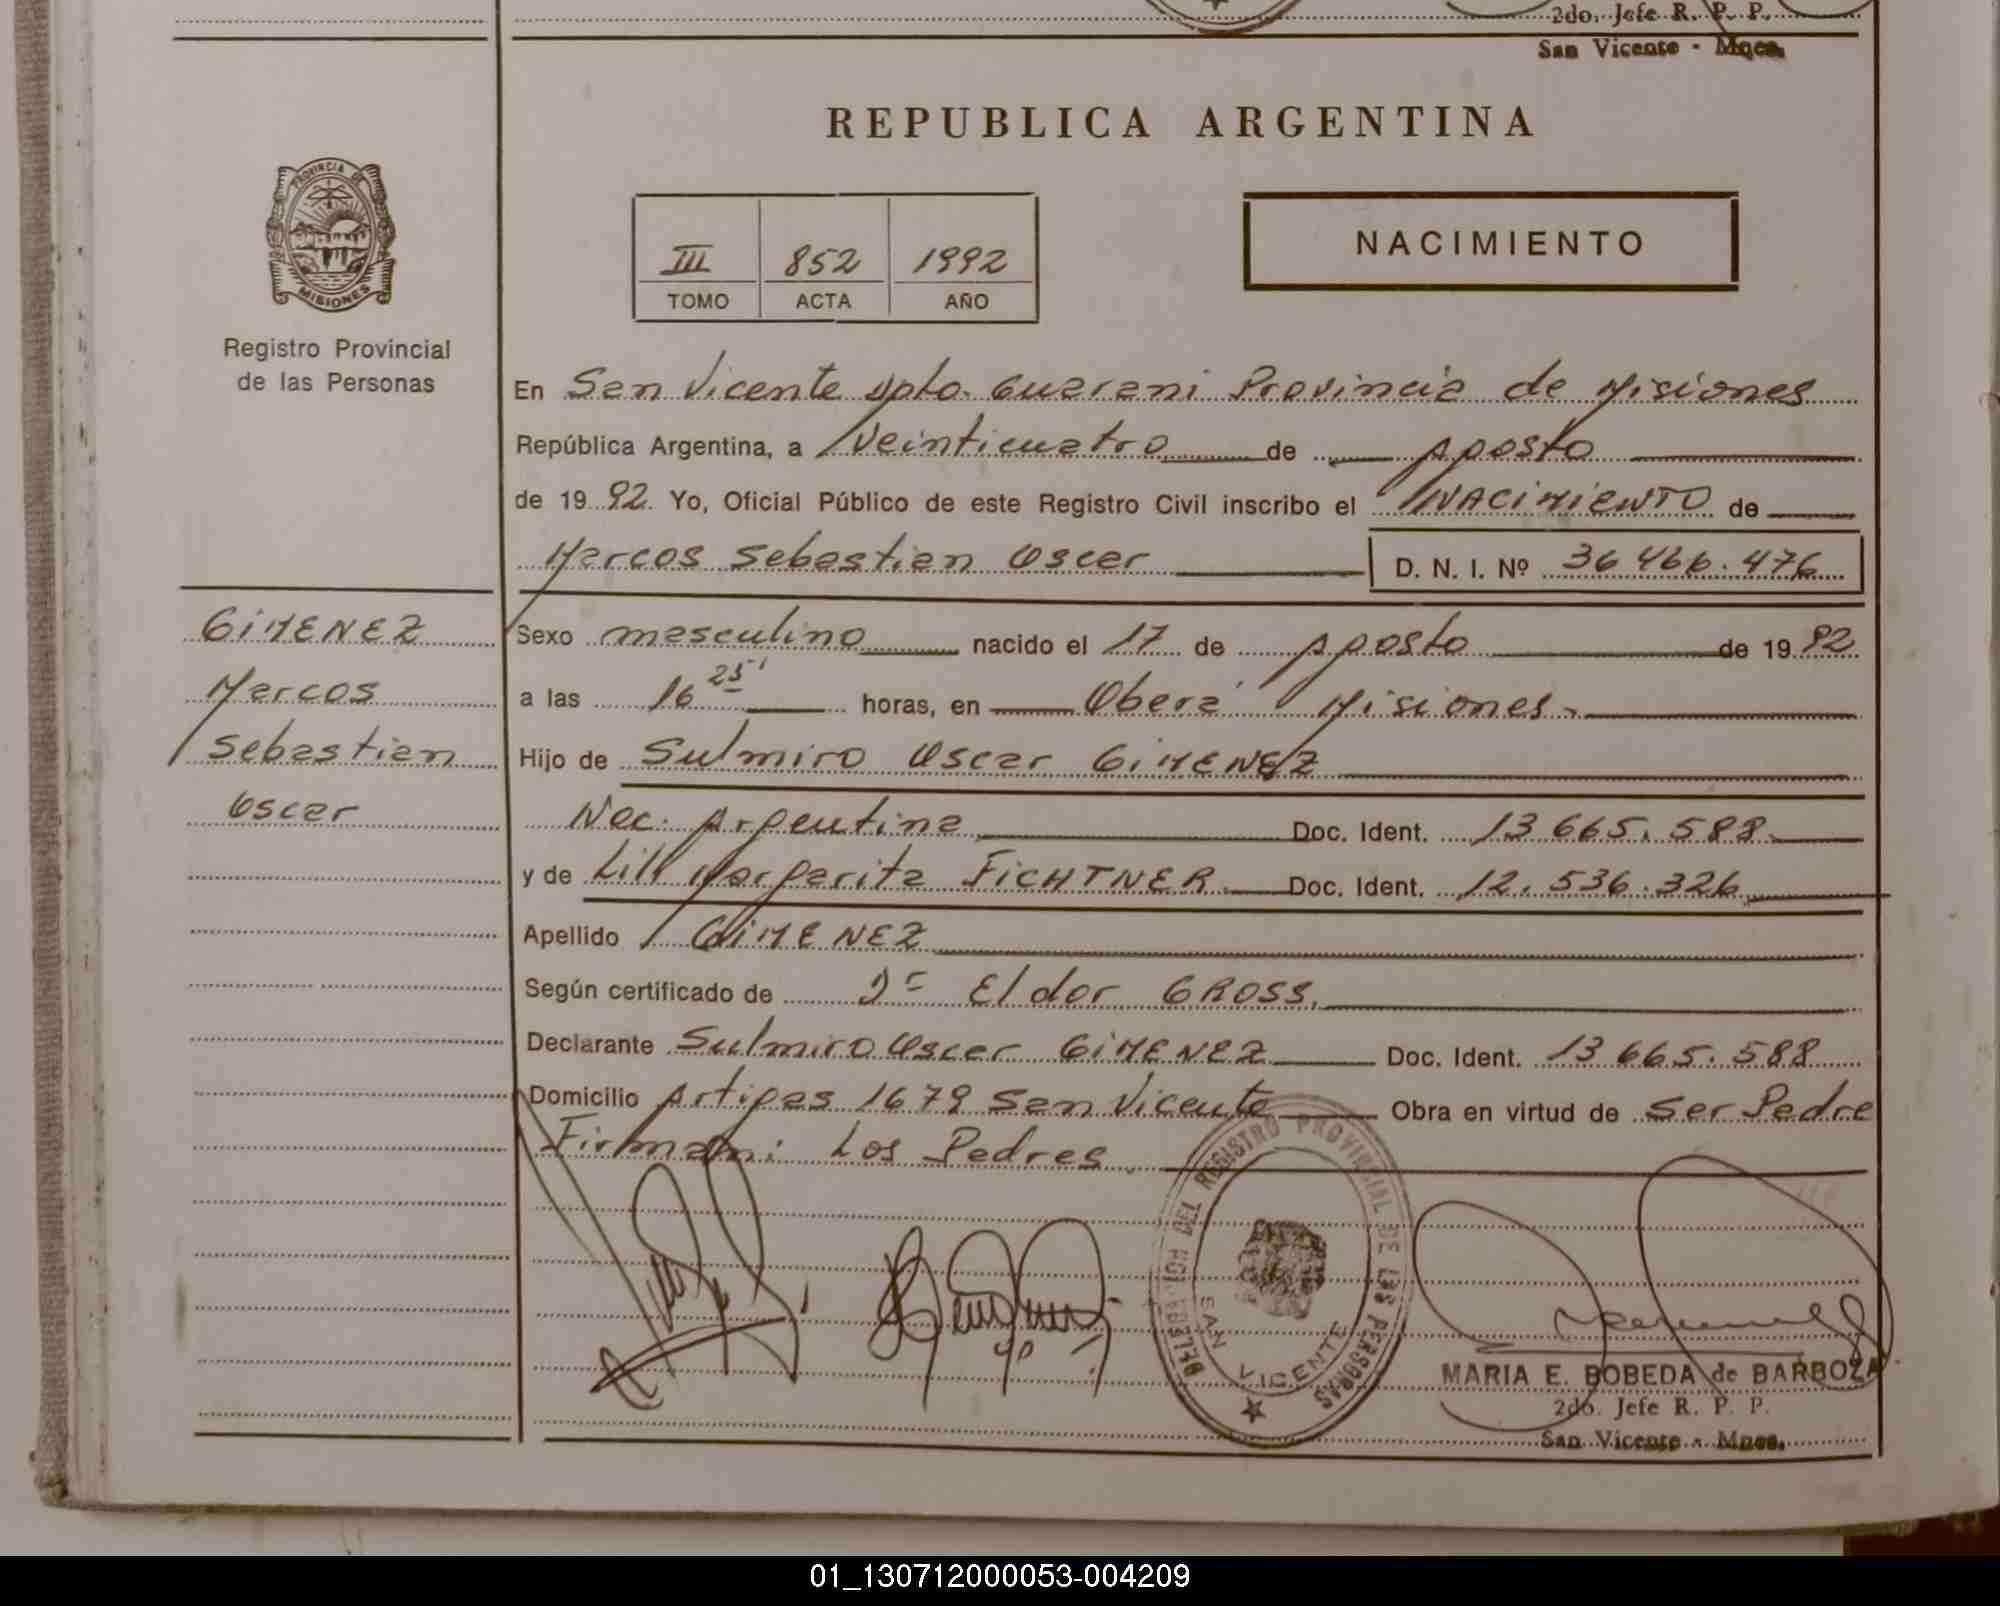 2do. Jefe R. P. P.
San Vicente - Mnes.
REPUBLICA ARGENTINA
PROVINCIA DE
MISIONES
III 852 1992
TOMO ACTA AÑO
NACIMIENTO
Registro Provincial
de las Personas
En San Vicente Dpto. Guarani Provincia de Misiones
República Argentina, a Veinticuatro de Agosto
de 1992. Yo, Oficial Público de este Registro Civil inscribo el NACIMIENTO de
Marcos Sebastian Oscar D. N. I. Nº 36 466.476
GIMENEZ
Marcos
Sebastian
Oscar
Sexo masculino nacido el 17 de Agosto de 1992
a las 16 25' horas, en Oberá Misiones.
Hijo de Sulmiro Oscar GIMENEZ
Nac. Argentina Doc. Ident. 13 665.588.
y de Lili Margarita FICHTNER Doc. Ident. 12.536.326
Apellido GIMENEZ
Según certificado de Dr Eldor GROSS.
Declarante Sulmiro Oscar GIMENEZ Doc. Ident. 13 665.588
Domicilio Artigas 1679 San Vicente Obra en virtud de Ser Padre
Firman: Los Padres.
DEL REGISTRO PROVINCIAL DE LAS PERSONAS
SAN VICENTE
MARIA E. BOBEDA de BARBOZA
2do. Jefe R. P. P.
San Vicente - Mnes.
01_130712000053-004209